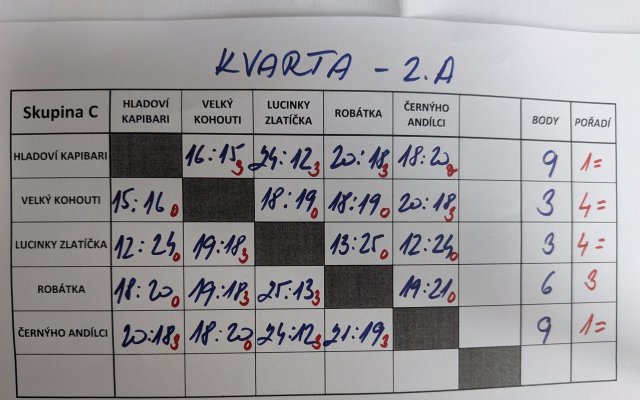 KVARTA - 2.A
Skupina C HLADOVÍ KAPIBARI VELKÝ KOHOUTI LUCINKY ZLATÍČKA ROBÁTKA ČERNÝHO ANDÍLCI BODY POŘADÍ
HLADOVÍ KAPIBARI 16:15 3 24:12 3 20:18 3 18:20 0 9 1=
VELKÝ KOHOUTI 15:16 0 18:19 0 18:19 0 20:18 3 3 4=
LUCINKY ZLATÍČKA 12:24 0 19:18 3 13:25 0 12:24 0 3 4=
ROBÁTKA 18:20 0 19:18 3 25:13 3 19:21 0 6 3
ČERNÝHO ANDÍLCI 20:18 3 18:20 0 24:12 3 21:19 3 9 1=